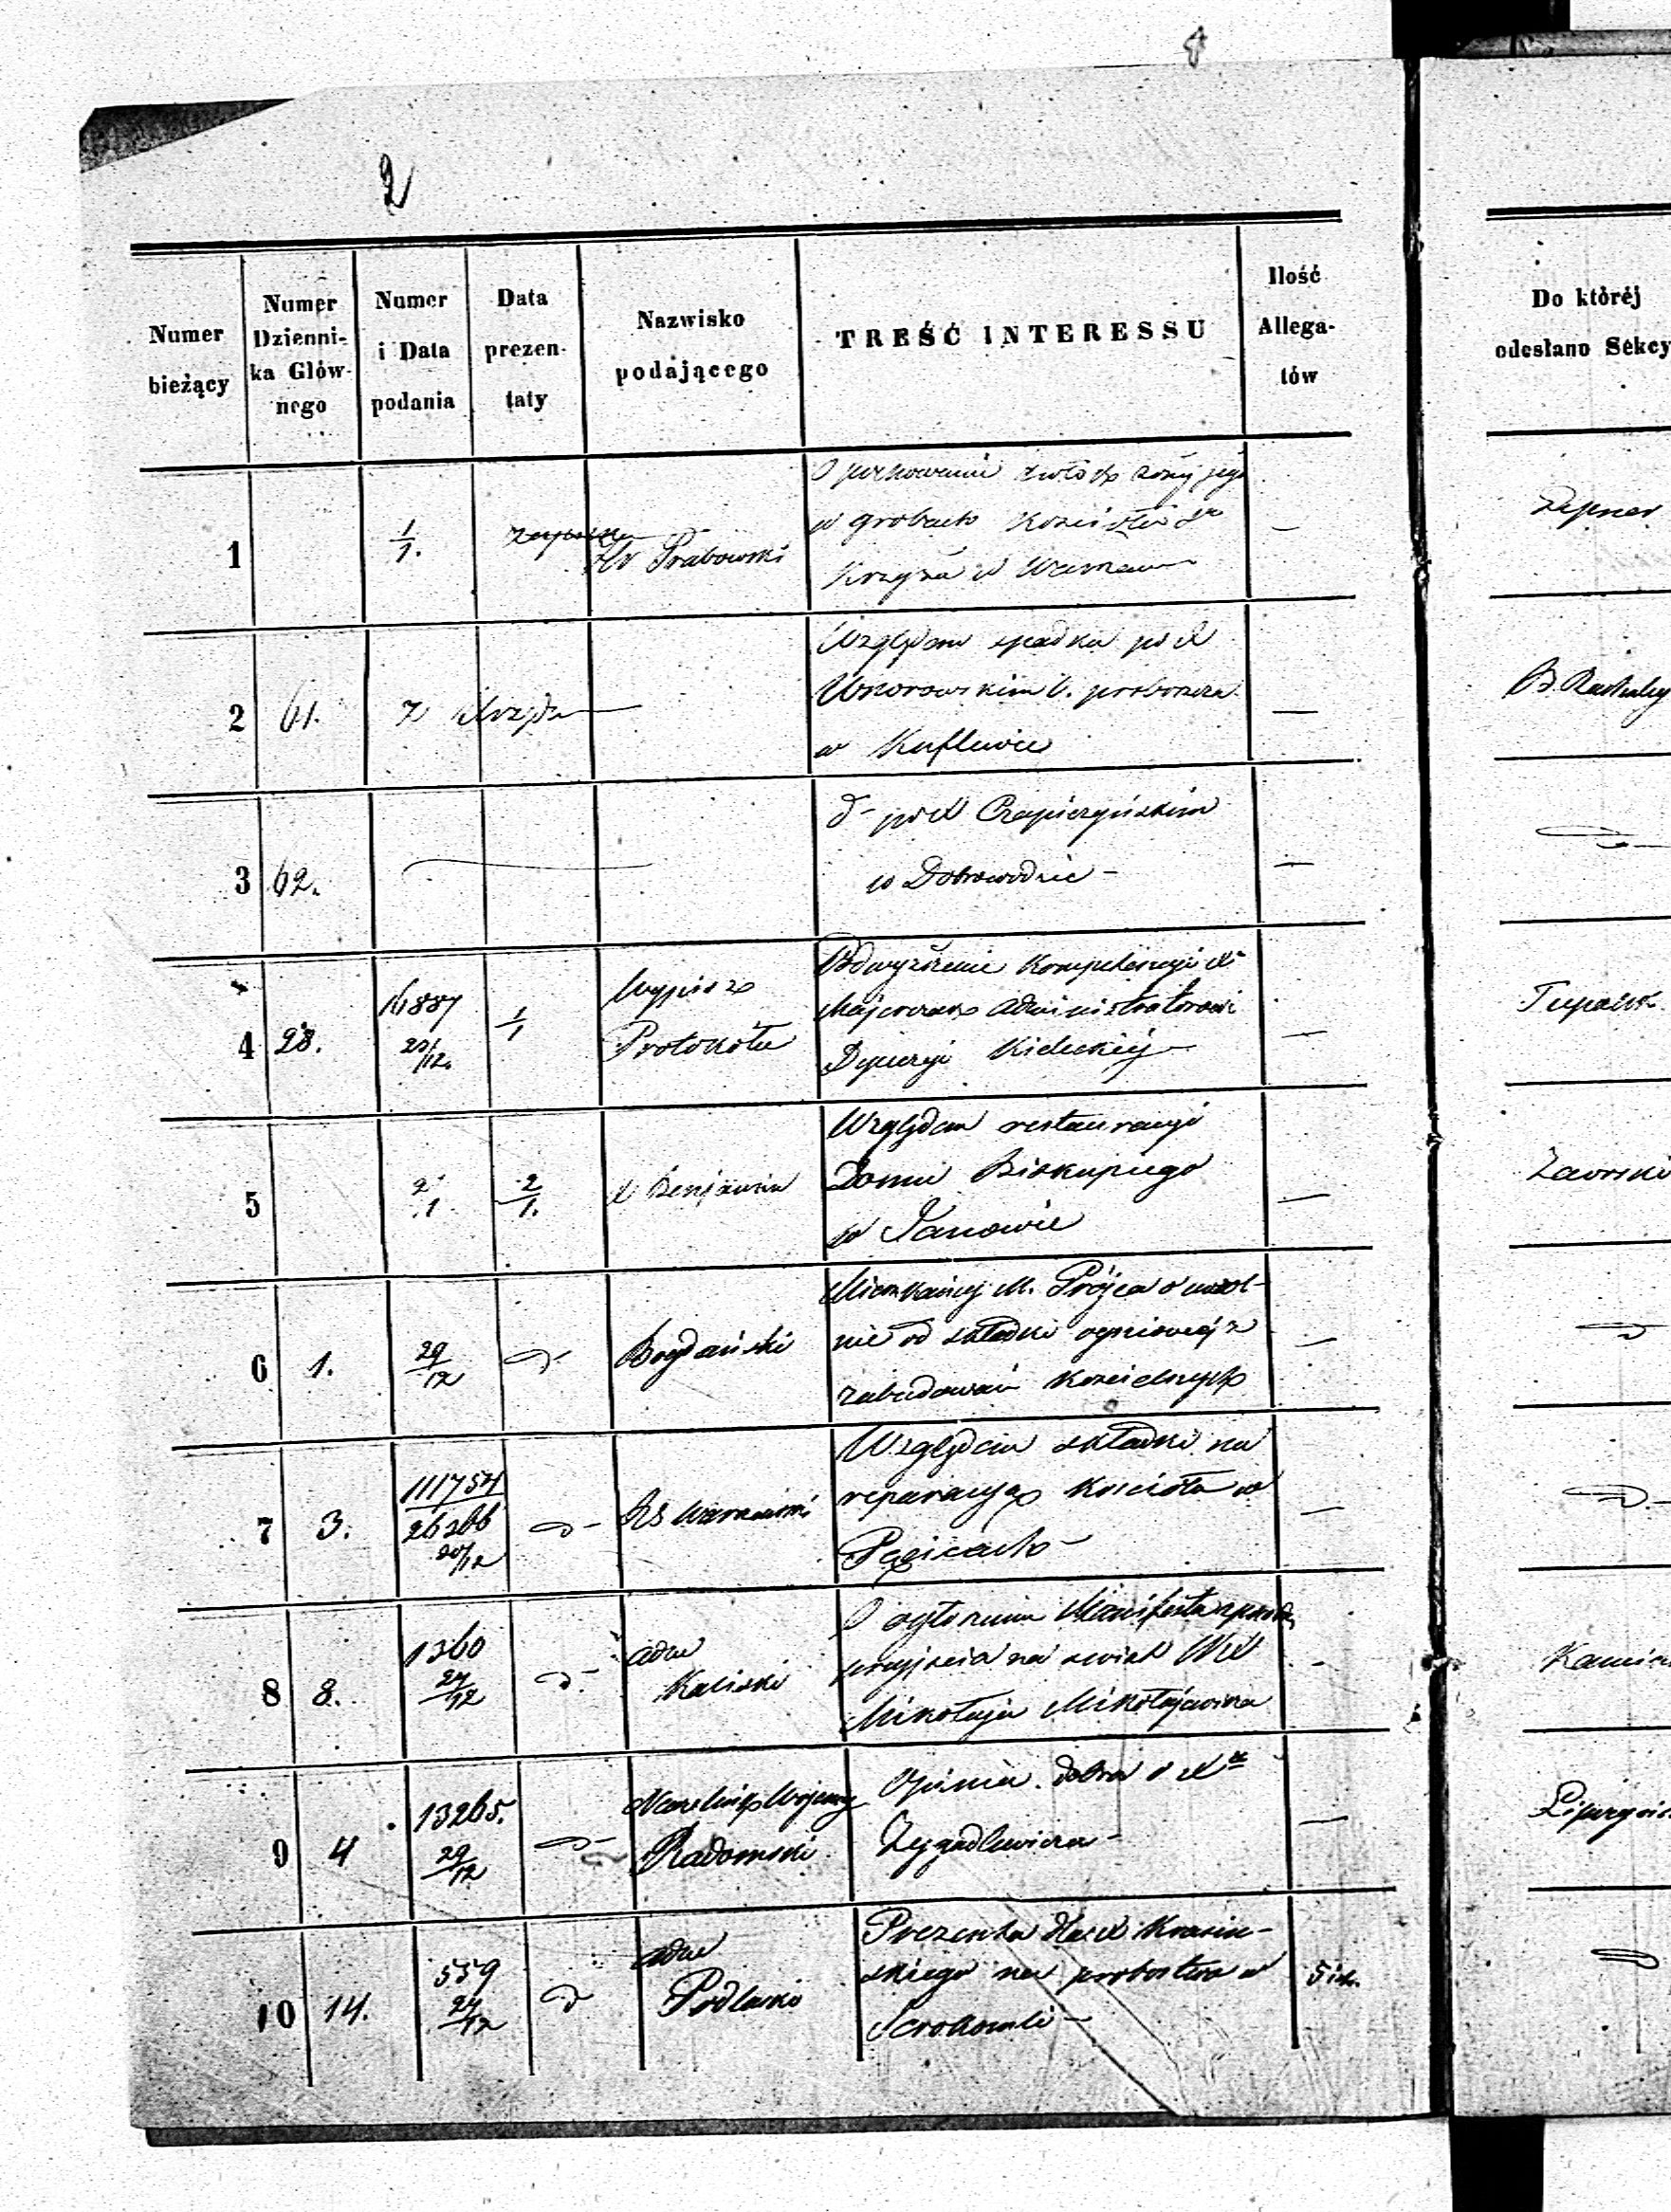 2
Numer bieżący
Numer Dzienni-ka Głów-nego
Numer i Data podania
Data prezen-taty
Nazwisko podającego
TREŚĆ INTERESSU
Ilość Allega-tów
Do któréj odesłano Sekcy
1
1/1.
Hr Grabowski
O pochowanie zwłok żony jego
w grobach kościoła Sgo
Krzyża w Warszawie
—
Lepner
2
61.
z Urzędu
Względem spadku po X
b. proboszczu
w Kuflewie
—
3
62.
d- po X Czapierzyńskim
w Dobrowodzie -
—
4
28.
16887
20/12.
1/1
Wypis z
Protokółu
Podwyższenie Kompetencyi X
Majerczak Administratorowi
Dyecezyi Kieleckiéj
—
Tupalsk
5
2/1
2/1.
X Benjamin
Względem restauracyi
Domu Biskupiego
w Janowie
—
Zaorski
6
1.
29/12
d-
Bogdański
Mieszkańcy M. Grójca o uwol-
nie od składki ogniowéj z
zabudowań kościelnych
—
7
3.
111754
26266
20/12
d-
RG Warszawski
Względem składki na
reparacyą kościoła w
Pęcicach
—
8
8.
1360
24/12
d-
adm
Kaliski
O ogłoszeniu Manifestu z powodu
przyjścia na świat WX
Mikołaja Mikołajewicza
-
Kamień
9
4
13265.
29/12
d-
Naczelnik Wojenny
Radomski
Opinia dobra o X
Zygadlewiczu -
—
10
14.
559
24/12
d
adm
Podlaski
Prezenta dla X Krasiń-
skiego na probostwo w
Serokomli -
5 szt.